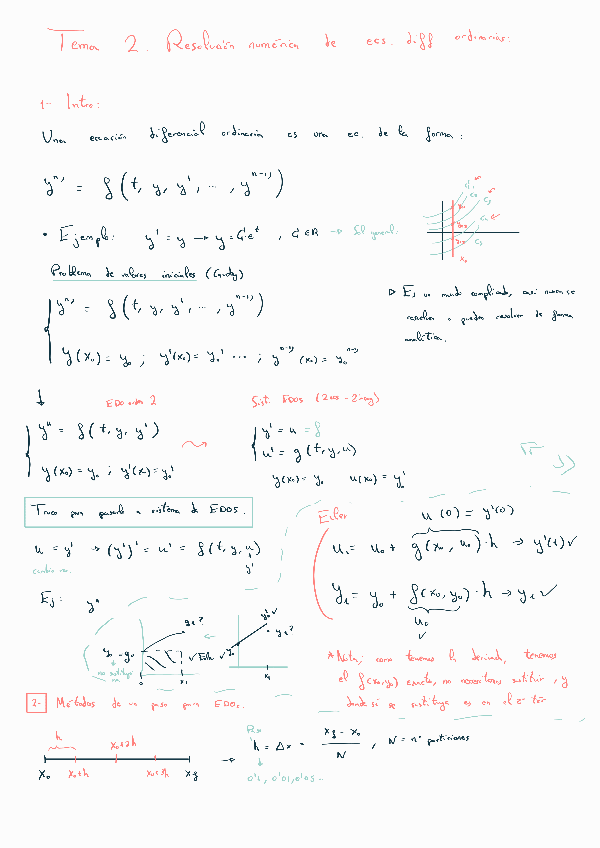 Tema 2. Resolución numérica de ecs. diff ordinarias:
1- Intro:
Una ecuación diferencial ordinaria es una ec. de la forma:
y^n) = f(t, y, y', ..., y^n-1))
• Ejemplo: y' = y → y = C·e^t, C ∈ R → Sol general:
Problema de valores iniciales (Cauchy)
y^n) = f(t, y, y', ..., y^n-1))
y(x₀) = y₀ ; y'(x₀) = y₀' ... ; y^n-1)(x₀) = y₀^n-1)
▷ Es un mundo complicado, casi nunca se
resuelve o pueden resolver de forma
analítica.
EDO orden 2
y'' = f(t, y, y')
y(x₀) = y₀ ; y'(x₀) = y₀'
Sist. EDOs (2 ecs - 2 incog)
y' = u = f
u' = g(t, y, u)
y(x₀) = y₀ u(x₀) = y₀'
Truco para pasarlo a sistema de EDOS.
u = y' → (y')' = u' = f(t, y, u)
cambio va. y'
Ej: y''
Euler
u(0) = y'(0)
u₁ = u₀ + g(x₀, u₀)·h → y'(1) ✓
y₁ = y₀ + f(x₀, y₀)·h → y₁ ✓
u₀
✓
y₁?
y₀
no sustituye
0 x₁
✓ Euler
y₀' ✓
y₁?
y₀
x₁
* Nota: como tenemos la derivada, tenemos
el f(x₀,y₀) exacto, no necesitamos sustituir, y
donde sí se sustituye es en el 2º ter
2- Métodos de un paso para EDOs.
h
x₀+2h
x₀ x₀+h x₀+3h x_f
→ h = Δx = x_f - x₀ / N , N = nº particiones
Paso
0'1, 0'01, 0'05...